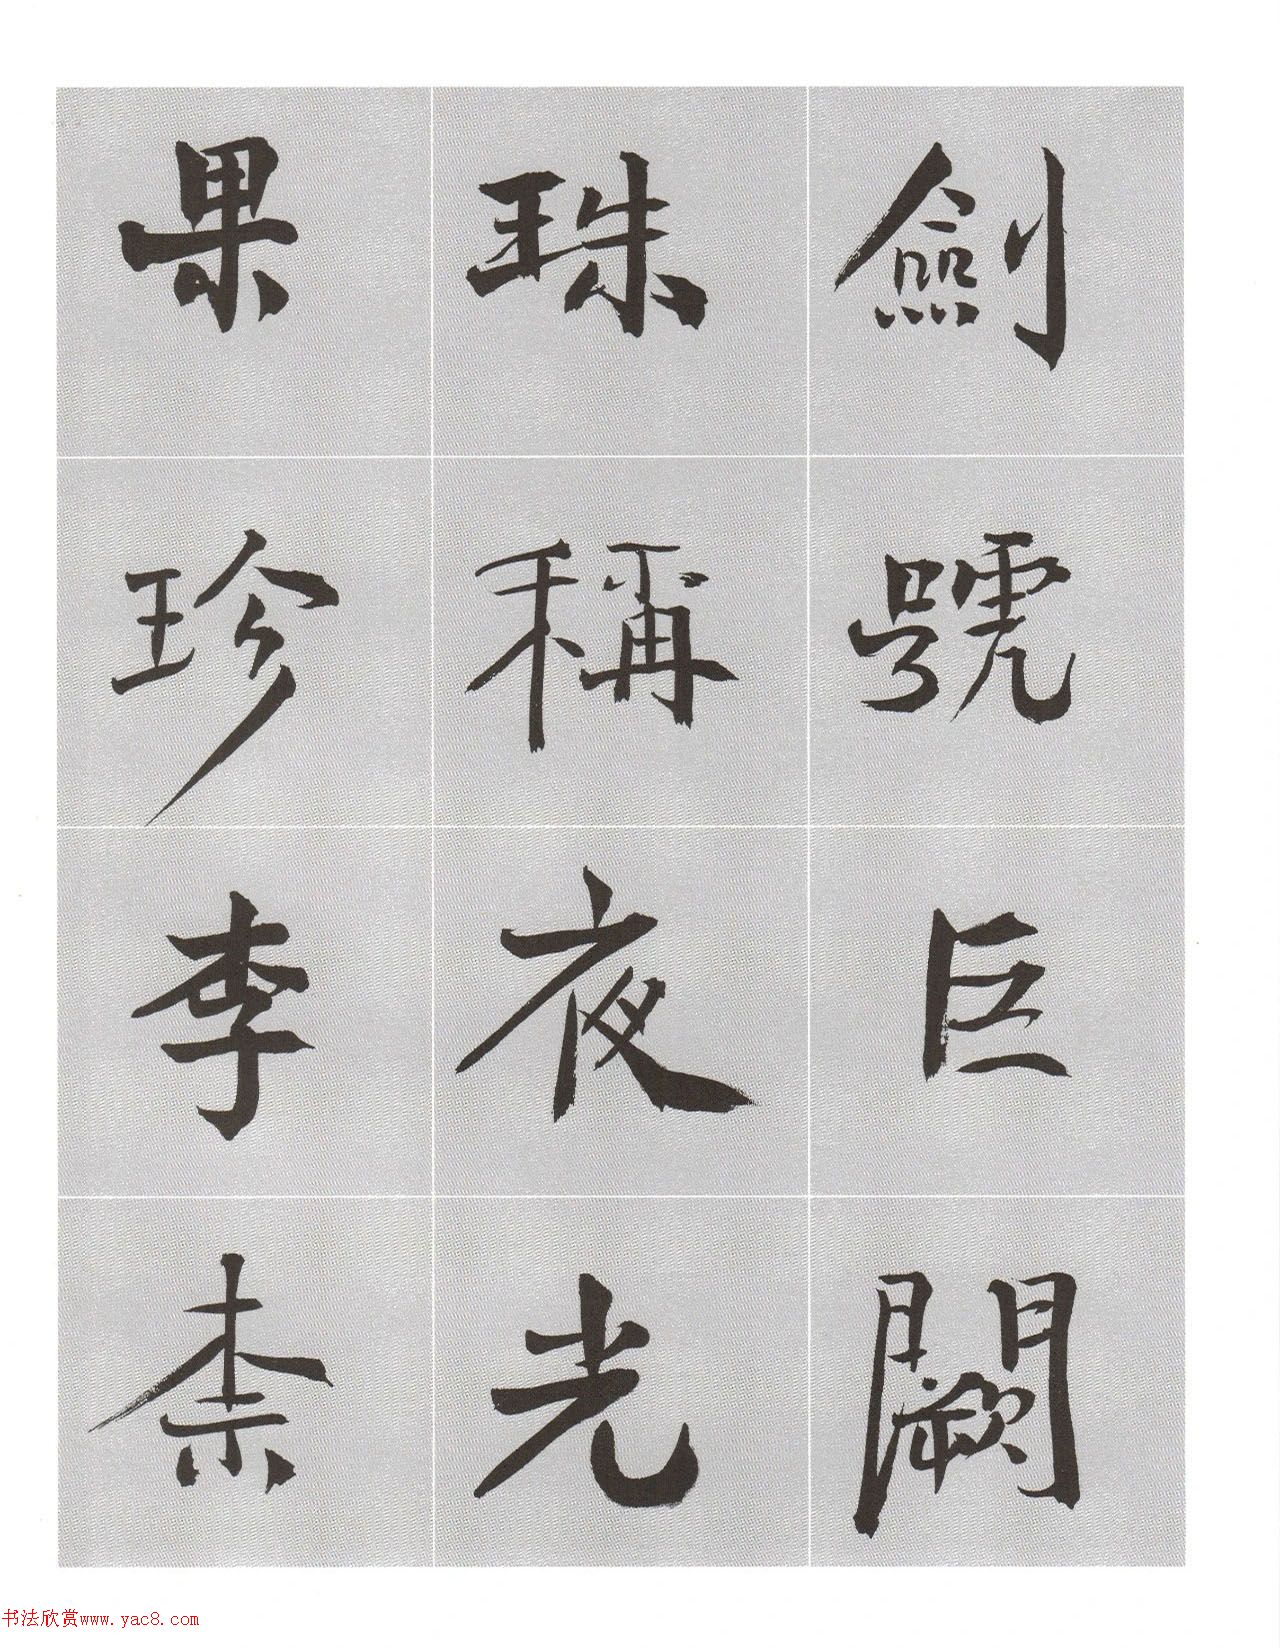 劍號巨闕
珠稱夜光
果珍李柰
书法欣赏www.yac8.com